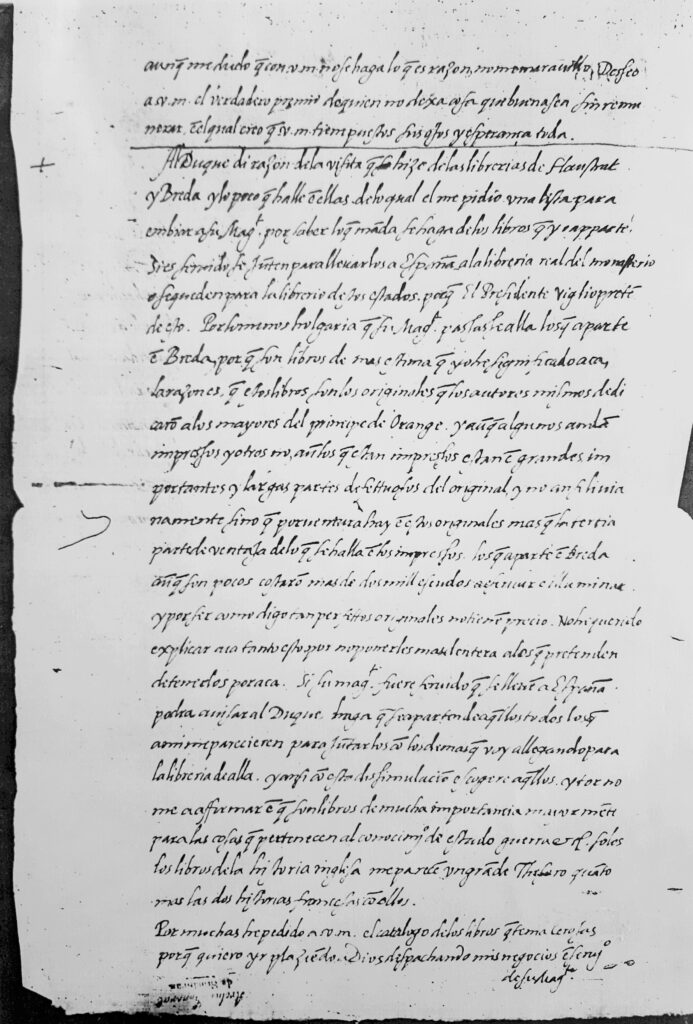 aunq̃ me dudo q̃ con v.m. no se haga lo q̃ es razon, no me maravillo, Desseo
a v.m. el verdadero premio de quien no dexa cosa que buena sea sin remu
nerar, ẽ el qual creo q̃ v.m. tiene puestos sus ojos y esperança toda.
Al Duque di razon de la visita q̃ hize de las librerias de Haustrat
y Breda y lo poco q̃ halle ẽ ellas. de lo qual el me pidio una lista para
embiar a su Mag.ᵗ por saber lo q̃ mãda se haga de los libros q̃ yo apparte.
Si es servido, se jũten para llevarlos a España, a la libreria real del monasterio
o se queden para la libreria de estos estados, porq̃ El Presidente viglio pretẽ
de esto. Por lo menos holgaria q̃ su Mag.ᵗ passasse alla los q̃ aparte
ẽ Breda, porq̃ son libros de mas estima q̃ yo he significado aca,
la razon es, q̃ estos libros, son los originales q̃ los autores mismos dedi
carõ a los mayores del principe de Orange. y aũq̃ algunos andã
impressos y otros no, aũ los q̃ estan impressos estan ẽ grandes, im
portantes y largas partes defettuosos del original, y no ansi livia
namente sino q̃ por ventura hay ẽ estos originales mas q̃ la tercia
parte de ventaja de lo q̃ se halla ẽ los impressos. los q̃ aparte ẽ Breda
aũq̃ son pocos costarõ mas de dos mill escudos a escrivir e illuminar
y por ser como digo tan perfettos originales no tienẽ precio. No he querido
explicar aca tanto esto por no ponerles mas dentera a los q̃ pretenden
detenerlos por aca. Si su mag.ᵗ fuere servido q̃ se llevẽ a España
podra avisar al Duque, haga q̃ se aparten de aq̃llos todos los q̃
a mi me parecieren para jũtarlos cõ los demas q̃ voy allegando para
la libreria de alla. y ansi cõ esta dissimulaciõ escogere aq̃llos. y torno
me a affirmar ẽ q̃ son libros de mucha importancia mayormẽte
para las cosas q̃ pertenecen al conocimᵒ de estado guerra &c. solos
los libros de la historia inglesa me parecẽ un grãde Thesoro quãto
mas las dos historias francesas cõ ellos.
Por muchas he pedido a v.m. el catalogo de los libros q̃ tema
porq̃ quiero yr plaziẽdo a Dios despachando mis negocios ẽ servᵒ
de su Mag.ᵗ